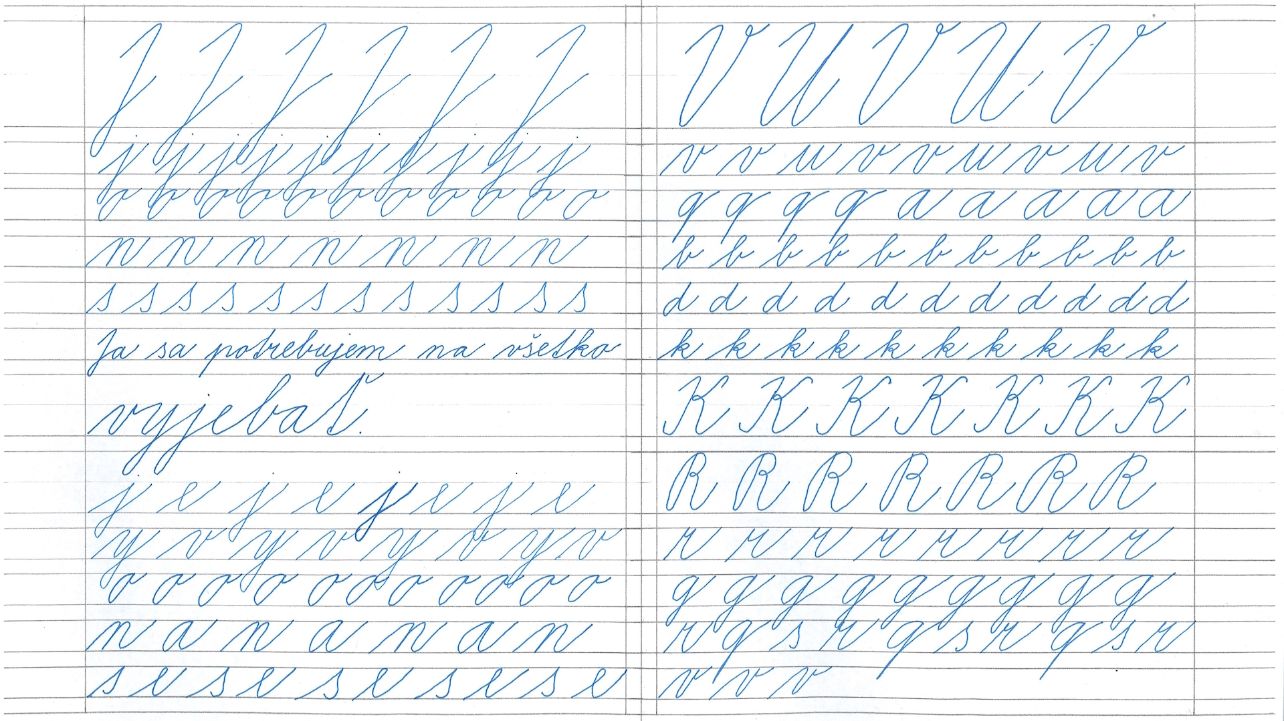 J J J J J J
j j j j j j j j j j j
o o o o o o o o o o o
n n n n n n n
s s s s s s s s s s s s
Ja sa potrebujem na všetko
vyjebať.
j e j e j e j e
y v y v y v y v
o o o o o o o o o o
n a n a n a n
s e s e s e s e s e
V U V U V
v v u v v u v u v
q q q q a a a a a
b b b b b b b b b b b
d d d d d d d d d d d
k k k k k k k k k k
K K K K K K K
R R R R R R R
r r r r r r r r r
q q q q q q q q q
r q s r q s r q s r
v v v